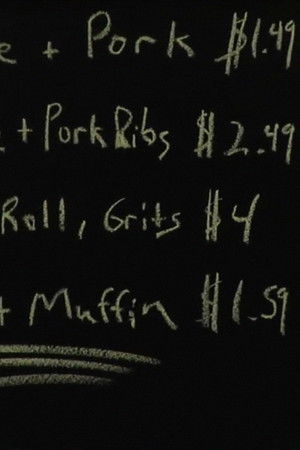 + Pork $1.49
+ Pork Ribs $2.49
Roll, Grits $4
+ Muffin $1.59